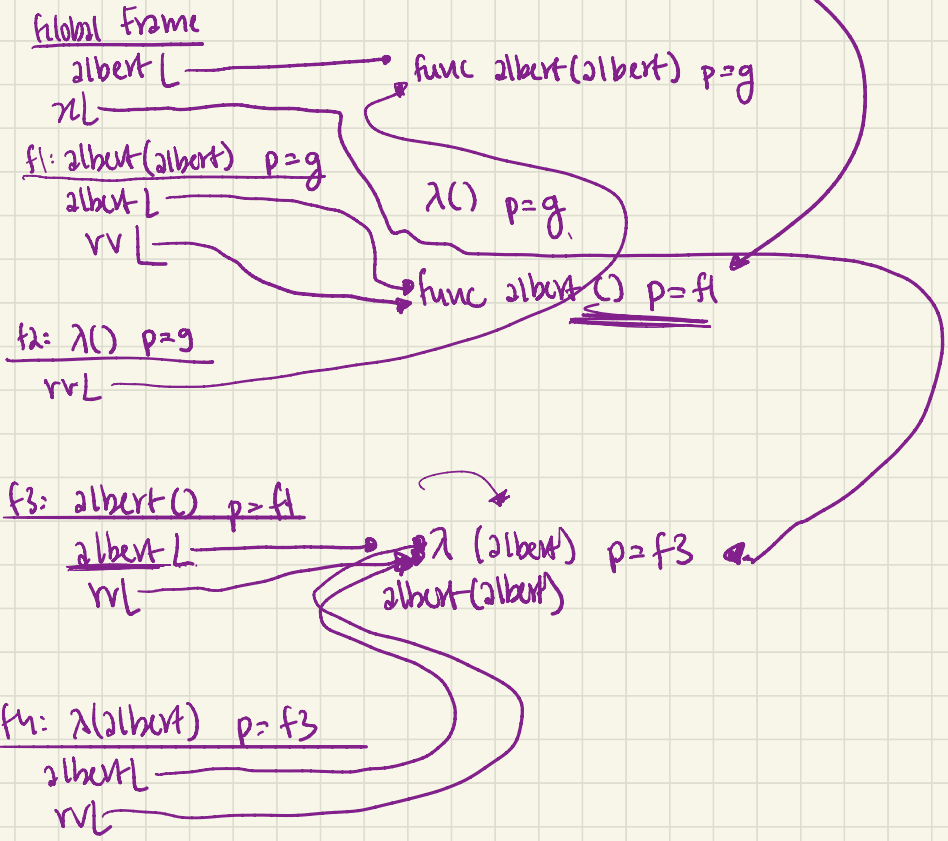 Global Frame
albert
func albert(albert) p=g
x
f1: albert(albert) p=g
albert
λ() p=g
rv
func albert () p=f1
f2: λ() p=g
rv
f3: albert() p=f1
albert
λ (albert) p=f3
rv
albert(albert)
f4: λ(albert) p=f3
albert
rv